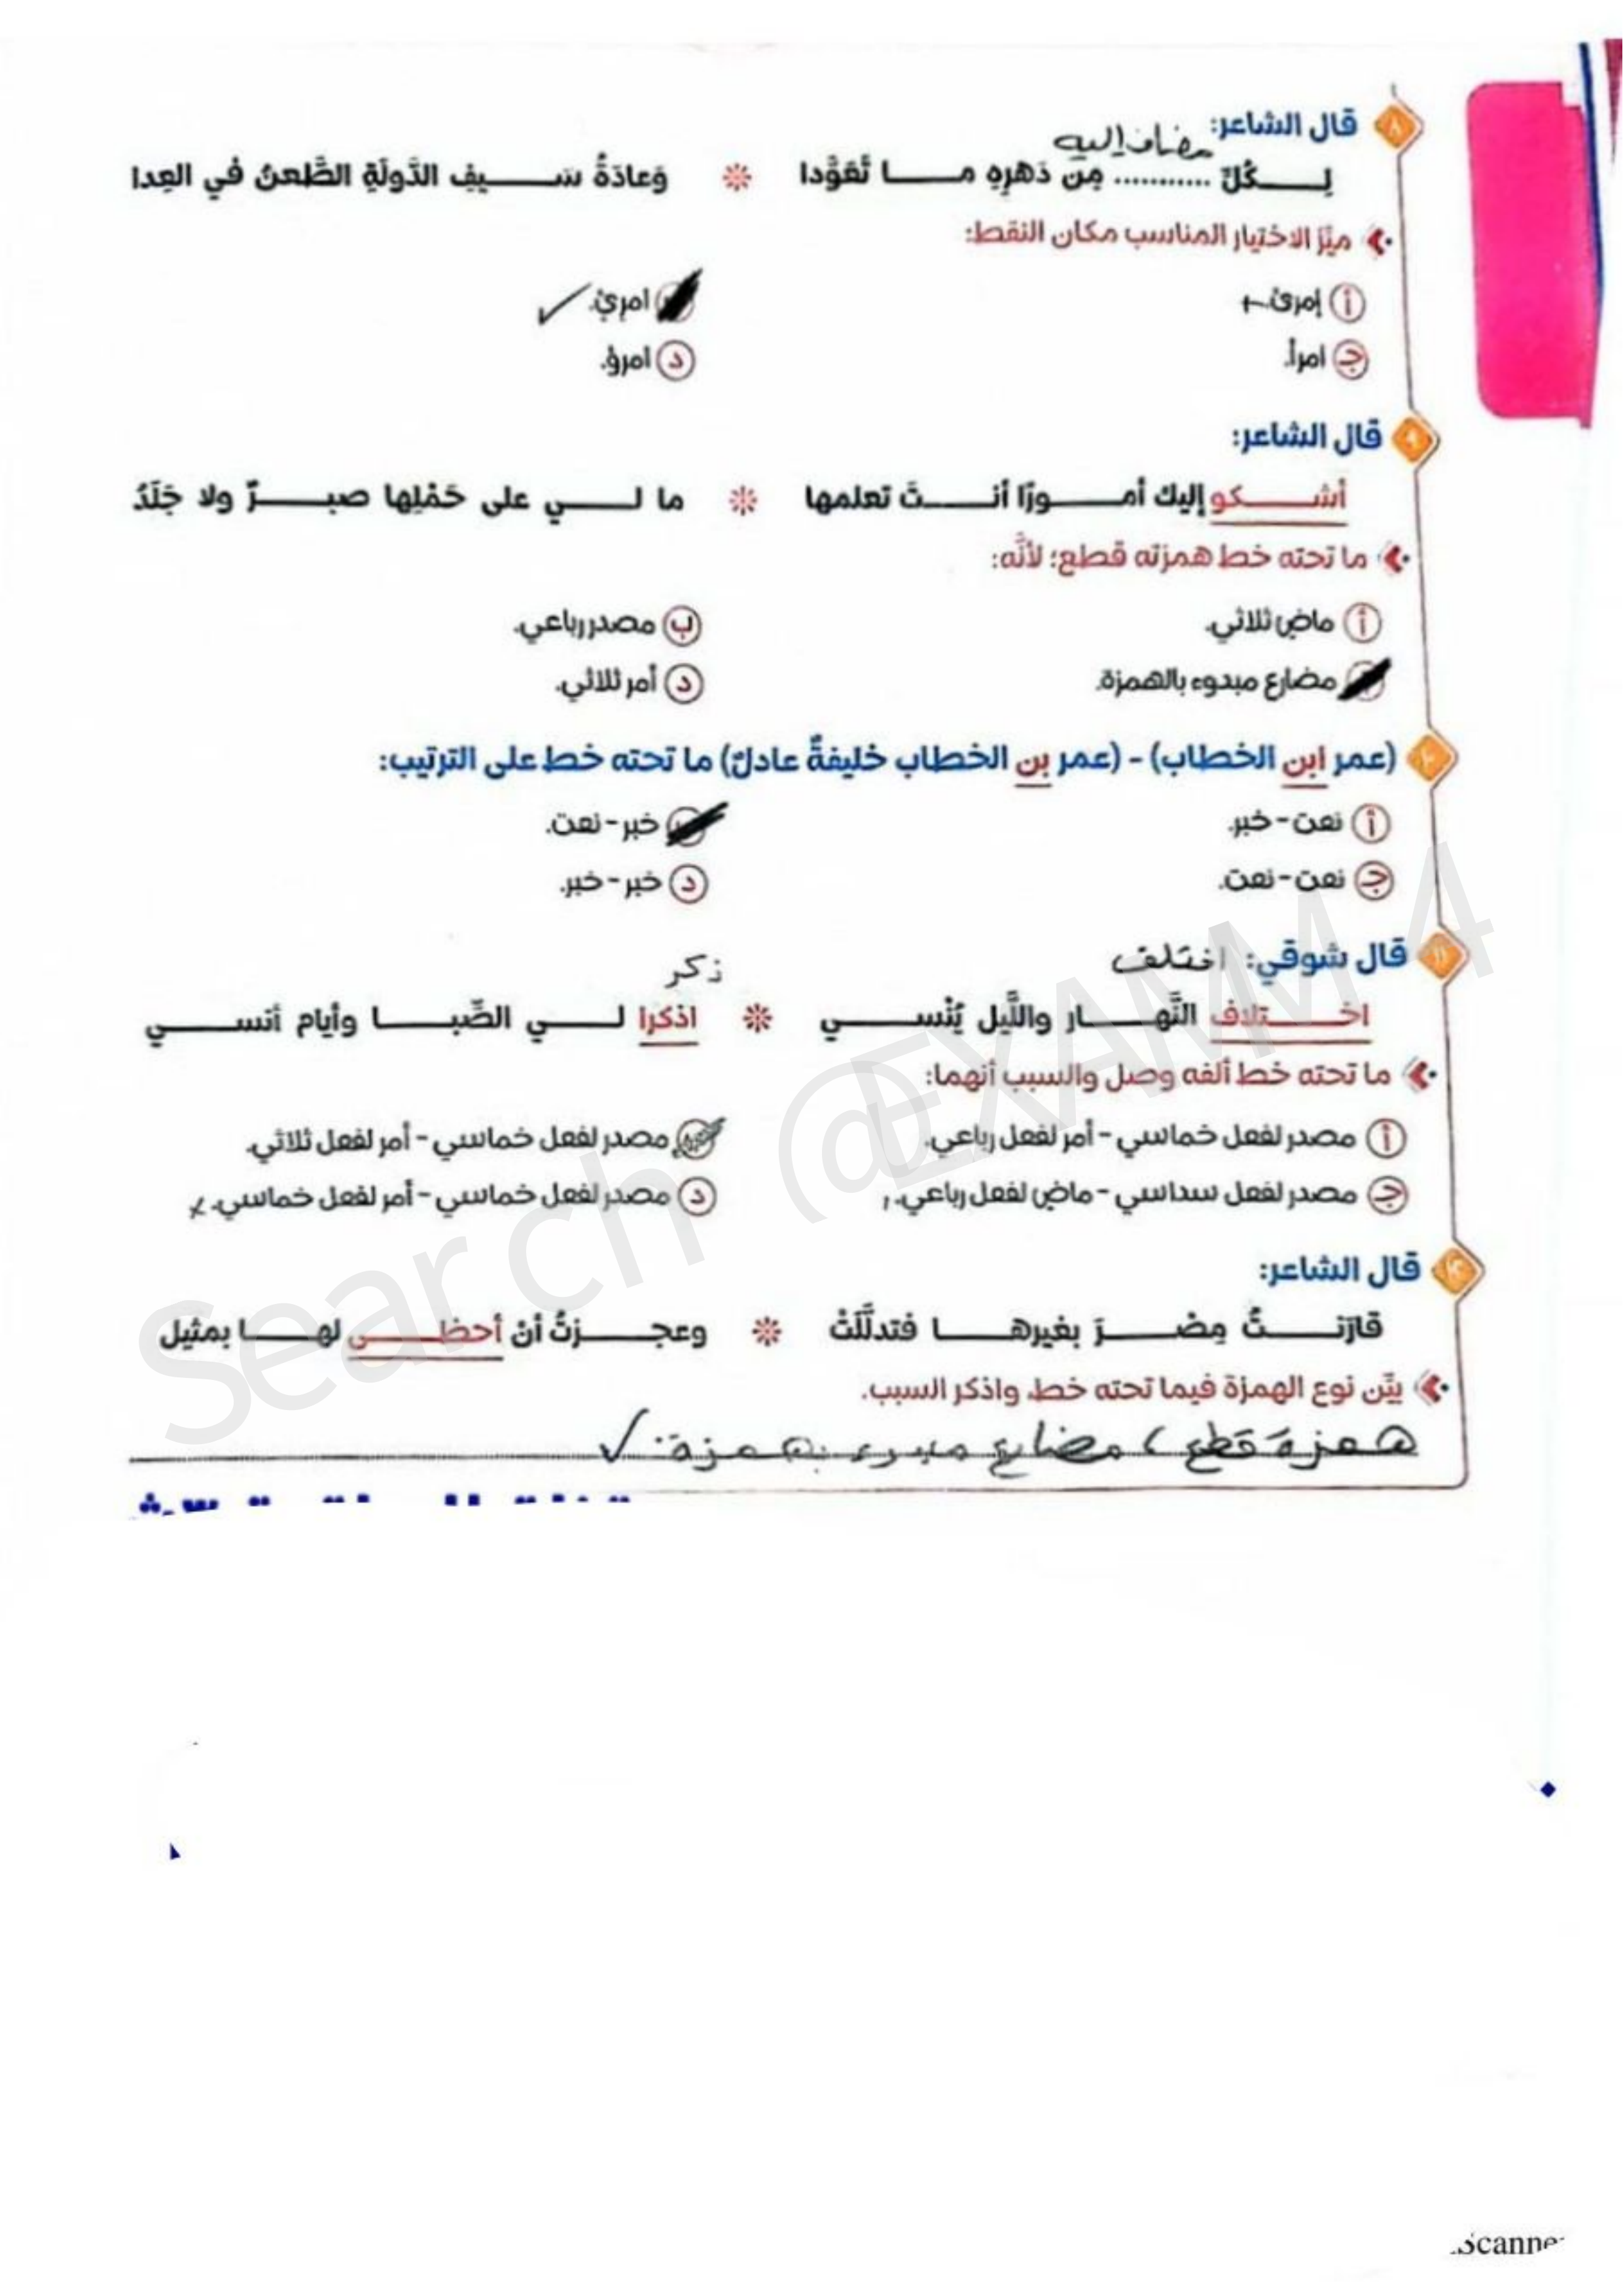 ٨ قال الشاعر:
مضاف إليه
لِكُلِّ ........... مِن دَهرِهِ ما تَعَوَّدا * وَعادَةُ سَيفِ الدَّولَةِ الطَّعنُ في العِدا
ميِّز الاختيار المناسب مكان النقط:
أ إمرئ. امرِئ. ✓
ج امرأ. د امرؤ.
٩ قال الشاعر:
أشكو إليك أمورًا أنتَ تعلمها * ما لي على حَمْلِها صبرٌ ولا جَلَدُ
ما تحته خط همزته قطع؛ لأنَّه:
أ ماضٍ ثلاثي. ب مصدر رباعي.
مضارع مبدوء بالهمزة. د أمر ثلاثي.
(عمر ابن الخطاب) - (عمر بن الخطاب خليفةٌ عادلٌ) ما تحته خط على الترتيب:
أ نعت - خبر. خبر - نعت.
ج نعت - نعت. د خبر - خبر.
١١ قال شوقي: اختلف
ذكر
اختلاف النَّهار واللَّيل يُنْسي * اذكرا لي الصِّبا وأيام أنسي
ما تحته خط ألفه وصل والسبب أنهما:
أ مصدر لفعل خماسي - أمر لفعل رباعي. مصدر لفعل خماسي - أمر لفعل ثلاثي.
ج مصدر لفعل سداسي - ماضٍ لفعل رباعي. د مصدر لفعل خماسي - أمر لفعل خماسي. x
١٢ قال الشاعر:
قارَنتُ مِصْرَ بغيرها فتدلَّلَتْ * وعجزتُ أنْ أحظى لها بمثيل
بيِّن نوع الهمزة فيما تحته خط، واذكر السبب.
همزة قطع، مضارع مبدوء بهمزة. ✓
Search @EXAM 4